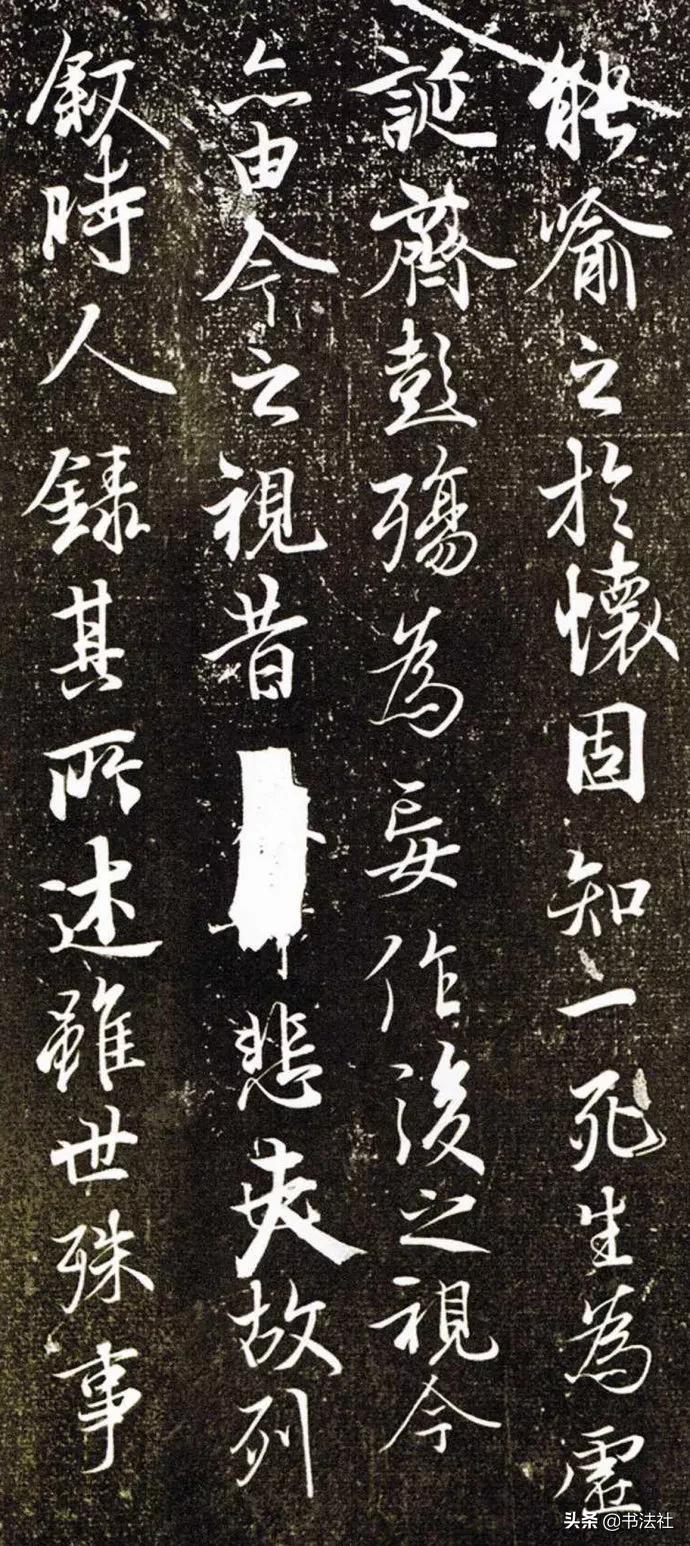 能喻之於懷固知一死生為虛
誕齊彭殤為妄作後之視今
亦由今之視昔悲夫故列
敘時人錄其所述雖世殊事
头条 @书法社